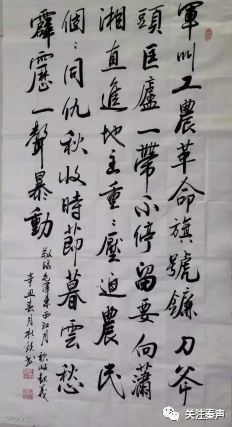 軍叫工農革命旗號鐮刀斧
頭匡廬一帶不停留要向瀟
湘直進地主重〻壓迫農民
個〻同仇秋收時節暮雲愁
霹靂一聲暴動
敬錄毛澤東西江月 秋收起義
辛丑春月杜 書
关注秦声